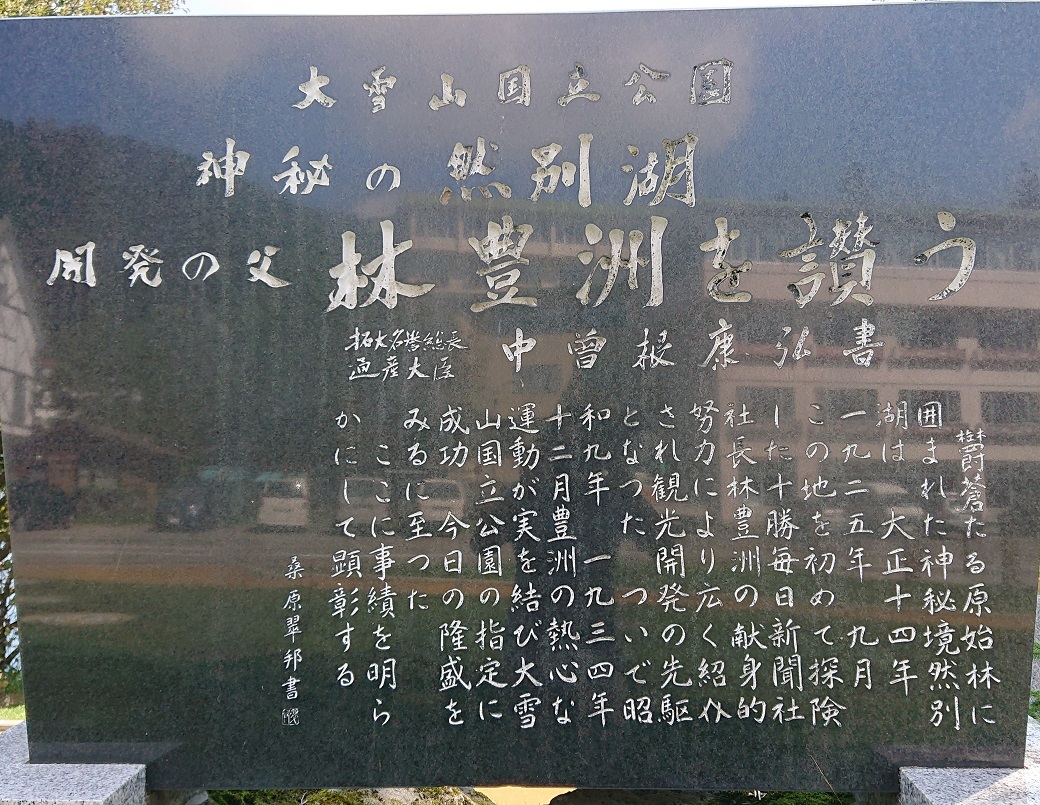 大雪山国立公園
神秘の然別湖
開発の父 林豊洲を讃う
拓大名誉総長
通産大臣
中曽根康弘書
欝蒼たる原始林に
囲まれた神秘境然別
湖は 大正十四年
一九二五年 九月
この地を初めて探険
した十勝毎日新聞社
社長林豊洲の献身的
努力により広く紹介
され観光開発の先駆
となつた ついで昭
和九年 一九三四年
十二月豊洲の熱心な
運動が実を結び大雪
山国立公園の指定に
成功 今日の隆盛を
みるに至つた
ここに事績を明ら
かにして顕彰する
桑原翠邦書